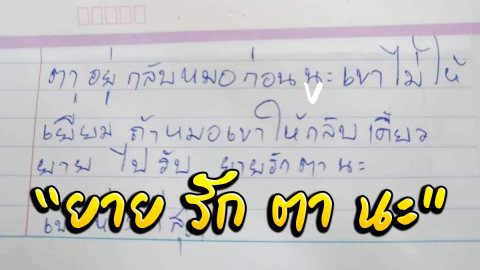 ตาอยู่ กลับหมอ ก่อน นะ เขา ไม่ ให้
เยี่ยม ถ้าหมอเขา ให้กลับ เดี๋ยว
ยาย ไป รับ ยายรัก ตา นะ
"ยาย รัก ตา นะ"